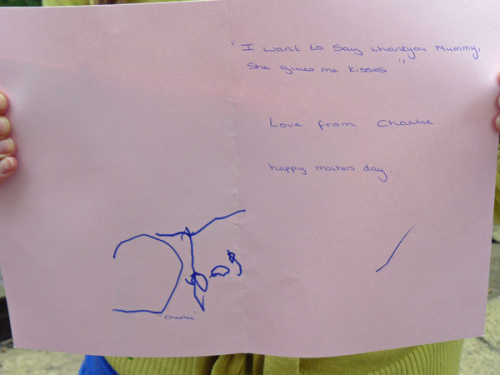 "I want to say thankyou Mummy,
She gives me kisses"
Love from Charlie
happy mothers day.